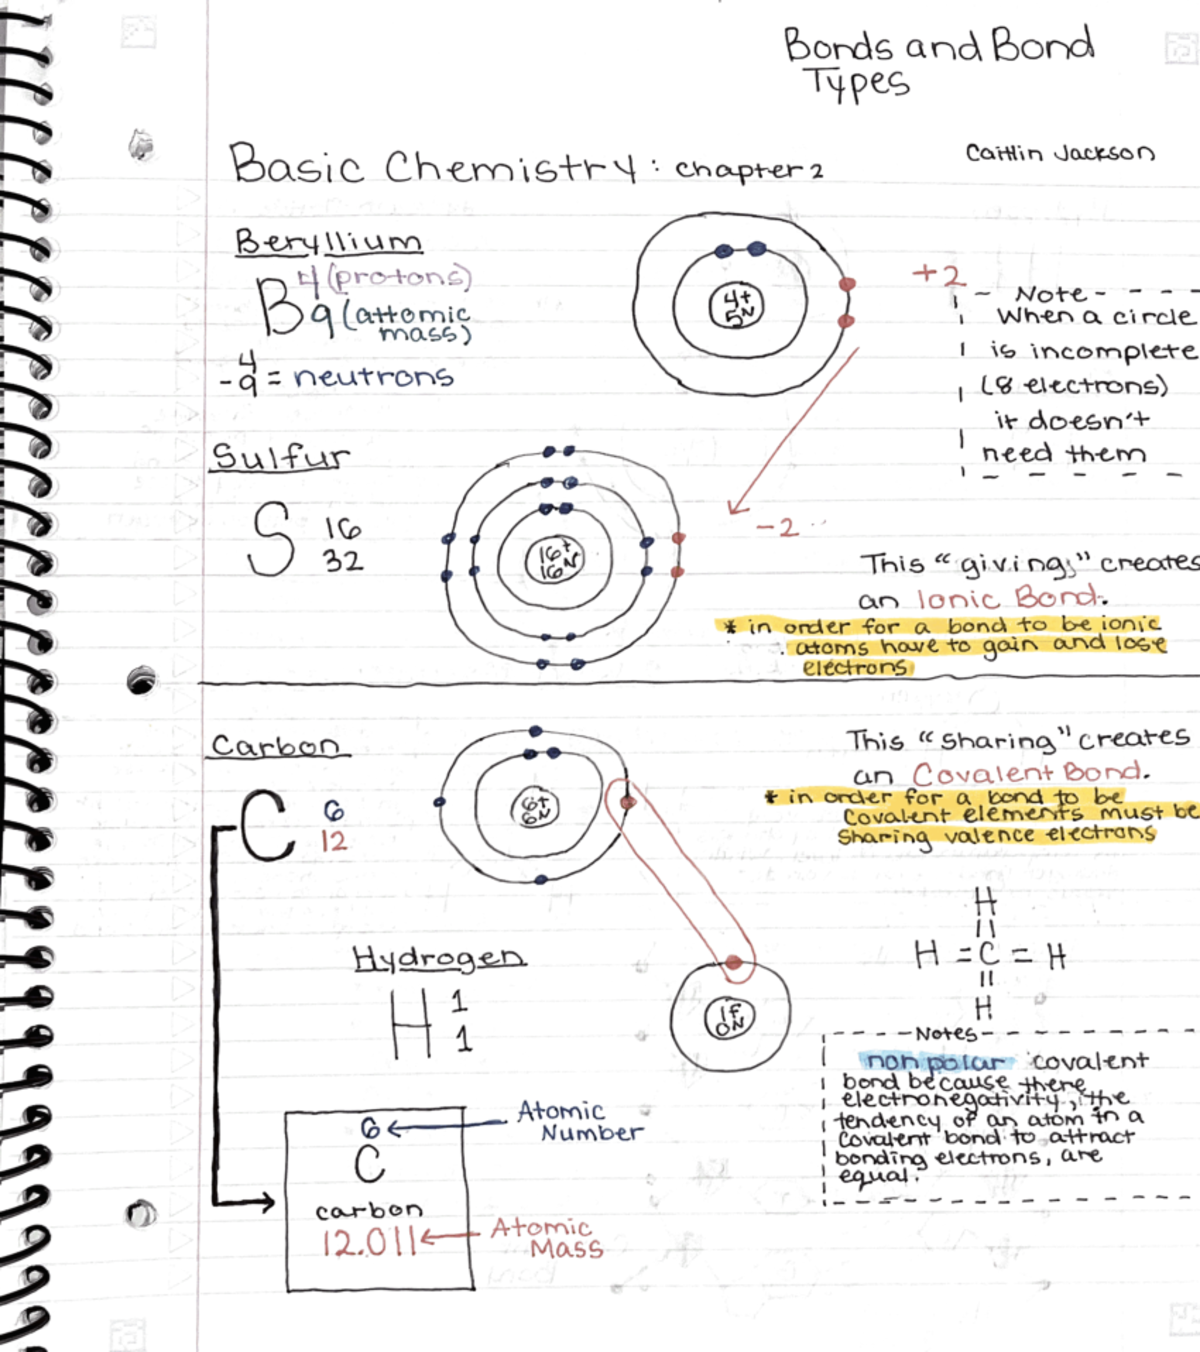 Bonds and Bond
Types
Basic Chemistry: chapter 2
Caitlin Jackson
Beryllium
B 4 (protons)
9 (attomic
mass)
4
-9 = neutrons
4+
5N
+2
- Note - - - -
When a circle
is incomplete
(8 electrons)
it doesn't
need them
Sulfur
S 16
32
16+
16N
-2
This "giving" creates
an Ionic Bond.
* in order for a bond to be ionic
atoms have to gain and lose
electrons
Carbon
C 6
12
6+
6N
This "sharing" creates
an Covalent Bond.
* in order for a bond to be
Covalent elements must be
Sharing valence electrons
H
=
H = C = H
=
H
Hydrogen
H 1
1
ON
- - - - Notes - - - -
non polar covalent
bond because there
electronegativity, the
tendency of an atom in a
covalent bond to attract
bonding electrons, are
equal.
6 ← Atomic
Number
C
carbon
12.011 ← Atomic
Mass